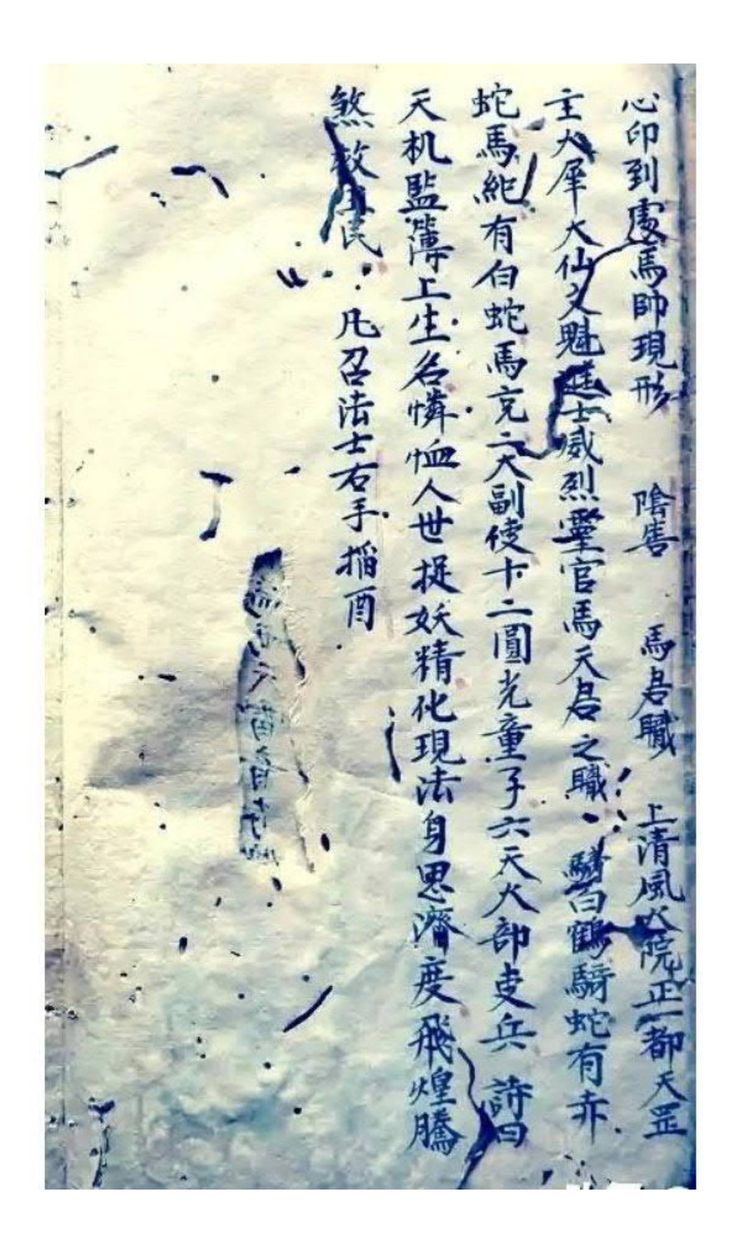 心印到處馬帥現形　陰害　馬君職　上清風火院正一都天罡
主火犀大仙文魁進士威烈靈官馬天君之職・騎白鶴騎蛇有赤
蛇馬紀有白蛇馬充二大副使十二圓光童子六天火部吏兵　詩曰
天机監簿上生名憐恤人世捉妖精化現法身思濟度飛煌騰
煞救民　凡召法士右手搯酉